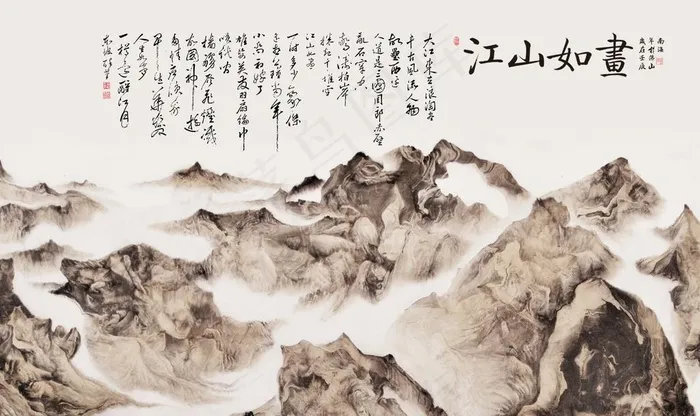 江山如畫
大江東去浪淘盡
千古風流人物
故壘西邊
人道是三國周郎赤壁
亂石穿空
驚濤拍岸
捲起千堆雪
江山如畫
一時多少豪傑
遙想公瑾當年
小喬初嫁了
雄姿英發羽扇綸巾
檣櫓灰飛煙滅
故國神遊
多情應笑我
早生華髮
人生如夢
一樽還酹江月